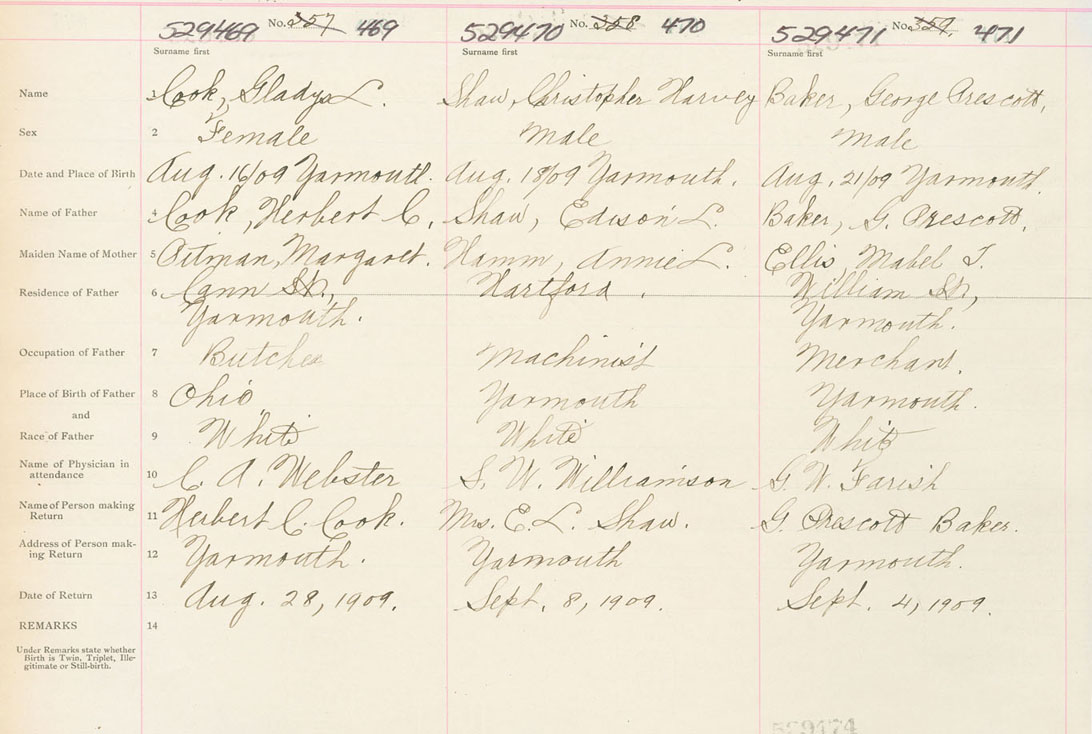 529469 No. 357 469 529470 No. 358 470 529471 No. 359 471
Surname first Surname first Surname first
Name 1 Cook, Gladys L. Shaw, Christopher Harvey Baker, George Prescott,
Sex 2 Female Male Male
Date and Place of Birth Aug. 16/09 Yarmouth. Aug. 18/09 Yarmouth. Aug. 21/09 Yarmouth.
Name of Father 4 Cook, Herbert C. Shaw, Edison L. Baker, G. Prescott,
Maiden Name of Mother 5 Pitman, Margaret. Hamm, Annie L. Ellis Mabel T.
Residence of Father 6 Cann St., Hartford. William St.,
Yarmouth. Yarmouth.
Occupation of Father 7 Butcher Machinist Merchant.
Place of Birth of Father 8 Ohio Yarmouth Yarmouth.
and
Race of Father 9 White White White
Name of Physician in
attendance 10 C. A. Webster S. W. Williamson G. W. Farish
Name of Person making
Return 11 Herbert C. Cook. Mrs. E. L. Shaw. G. Prescott Baker.
Address of Person mak-
ing Return 12 Yarmouth. Yarmouth Yarmouth.
Date of Return 13 Aug. 28, 1909. Sept. 8, 1909. Sept. 4, 1909.
REMARKS 14
Under Remarks state whether
Birth is Twin, Triplet, Ille-
gitimate or Still-birth.